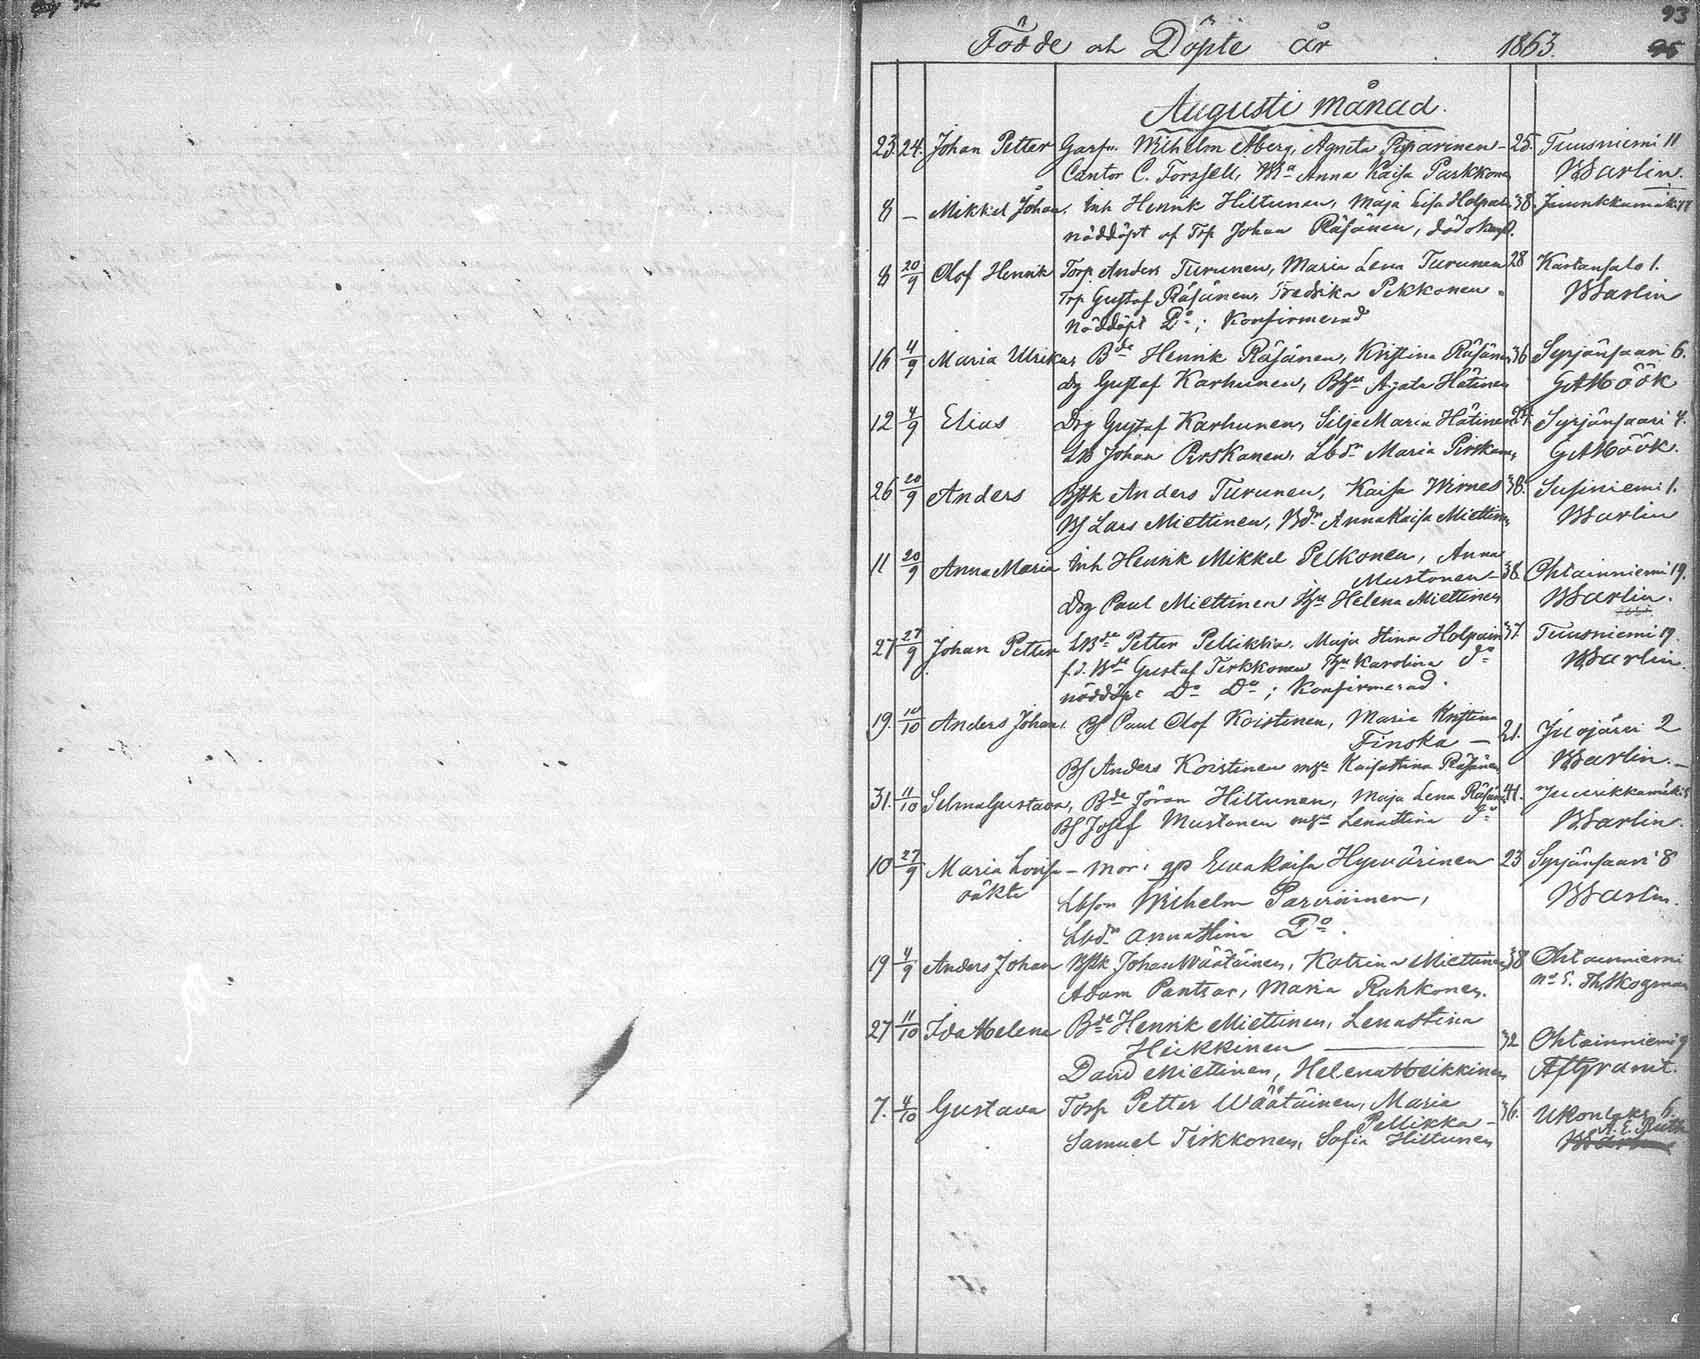 93
Födde och Döpte år 1863. 95
Augusti månad.
23. 24. Johan Petter Garfv. Wilhelm Åberg, Agneta Pitkärinen 25. Tuusniemi 11
Cantor C. Forssell, Anna Kaisa Parkkonen Warlin.
8 — Mikkel Johan. Inh Henrik Hiltunen, Maja Lisa Holpain 38. Juurikkamäki 17
nöddöpt af Trp Johan Räsänen, död okonf.
8 20/9 Olof Henrik Torp Anders Turunen, Maria Lena Turunen 28 Kartansalo 1.
Trp Gustaf Räsänen, Fredrika Pekkonen Warlin
Nöddöpt Do; Konfirmerad
16 4/9 Maria Ulrika, Bde Henrik Räsänen, Kristina Räsänen 36 Syrjänsaari 6.
Drg Gustaf Karhunen, Agata Hätinen G A Höök
12 4/9 Elias Drg Gustaf Karhunen, Silja Maria Hätinen 24. Syrjänsaari 4.
Johan Pirskanen, Lbdr Maria Pirskanen G A Höök.
26 20/9 Anders Anders Turunen, Kaisa Wirnes 38. Susiniemi 1.
Bs Lars Miettinen, Bdr Anna Kaisa Miettinen Warlin
11 20/9 Anna Maria Inh Henrik Mikkel Pelkonen, Anna
Mustonen — 38. Ohtainniemi 19.
Drg Paul Miettinen Hu Helena Miettinen Warlin.
27 27/9 Johan Petter Petter Pellikka, Maja Stina Holpain 37. Tuusniemi 19.
f.d. Bde Gustaf Tirkkonen Hu Karolina do Warlin.
nöddöpt Do Do; Konfirmerad.
19. 10/10 Anders Johan. Bs Paul Olof Koistinen, Maria Kristina
Finska — 21. Juojärvi 2
Bs Anders Koistinen Kaisa Stina Räsänen Warlin. —
31. 11/10 Selma Gustava, Bde Jöran Hiltunen, Maja Lena Räsänen 41. Juurikkamäki 5
Bs Josef Mustonen Lena Stina do Warlin.
10 27/9 Maria Lovisa — Mor: Eva Kaisa Hyvärinen 23 Syrjänsaari 8
oäkta Lbson Wilhelm Parviainen, Warlin.
Lbdr Anna Stina Do.
19 4/9 Anders Johan Johan Wäätäinen, Katrina Miettinen 38 Ohtainniemi
Adam Pantsar, Maria Rahkonen. no 5. Th Skogman
27 11/10 Ida Helena Bde Henrik Miettinen, Lena Stina
Heikkinen — 32 Ohtainniemi 9
David Miettinen, Helena Heikkinen A F Granit.
7. 4/10 Gustava Torp Petter Wäätäinen, Maria
Pellikka — 36. Ukonlaks 6.
Samuel Tirkkonen, Sofia Hiltunen A. E. Ruth